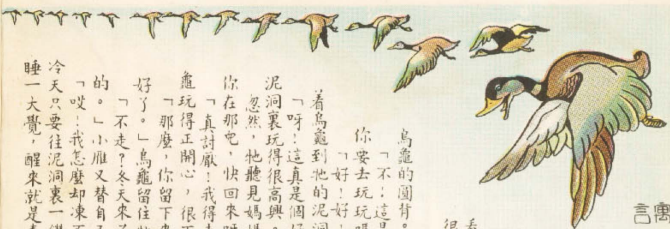 寓言
看
很
烏龜的圓背。
「不！這是
你要去玩玩嗎
「好！好！
着烏龜到牠的泥洞
「呀！這真是個好
泥洞裏玩得很高興。
忽然，牠聽見媽媽
你在那兒，快回來呀
「真討厭！我得走
龜玩得正開心，很不
「那麼，你留下來
好了。」烏龜留住牠
「不走？冬天來了
的。」小雁又替自己
「哎！我怎麼却凍不
冷天只要往泥洞裏一鑽
睡一大覺，醒來就是春